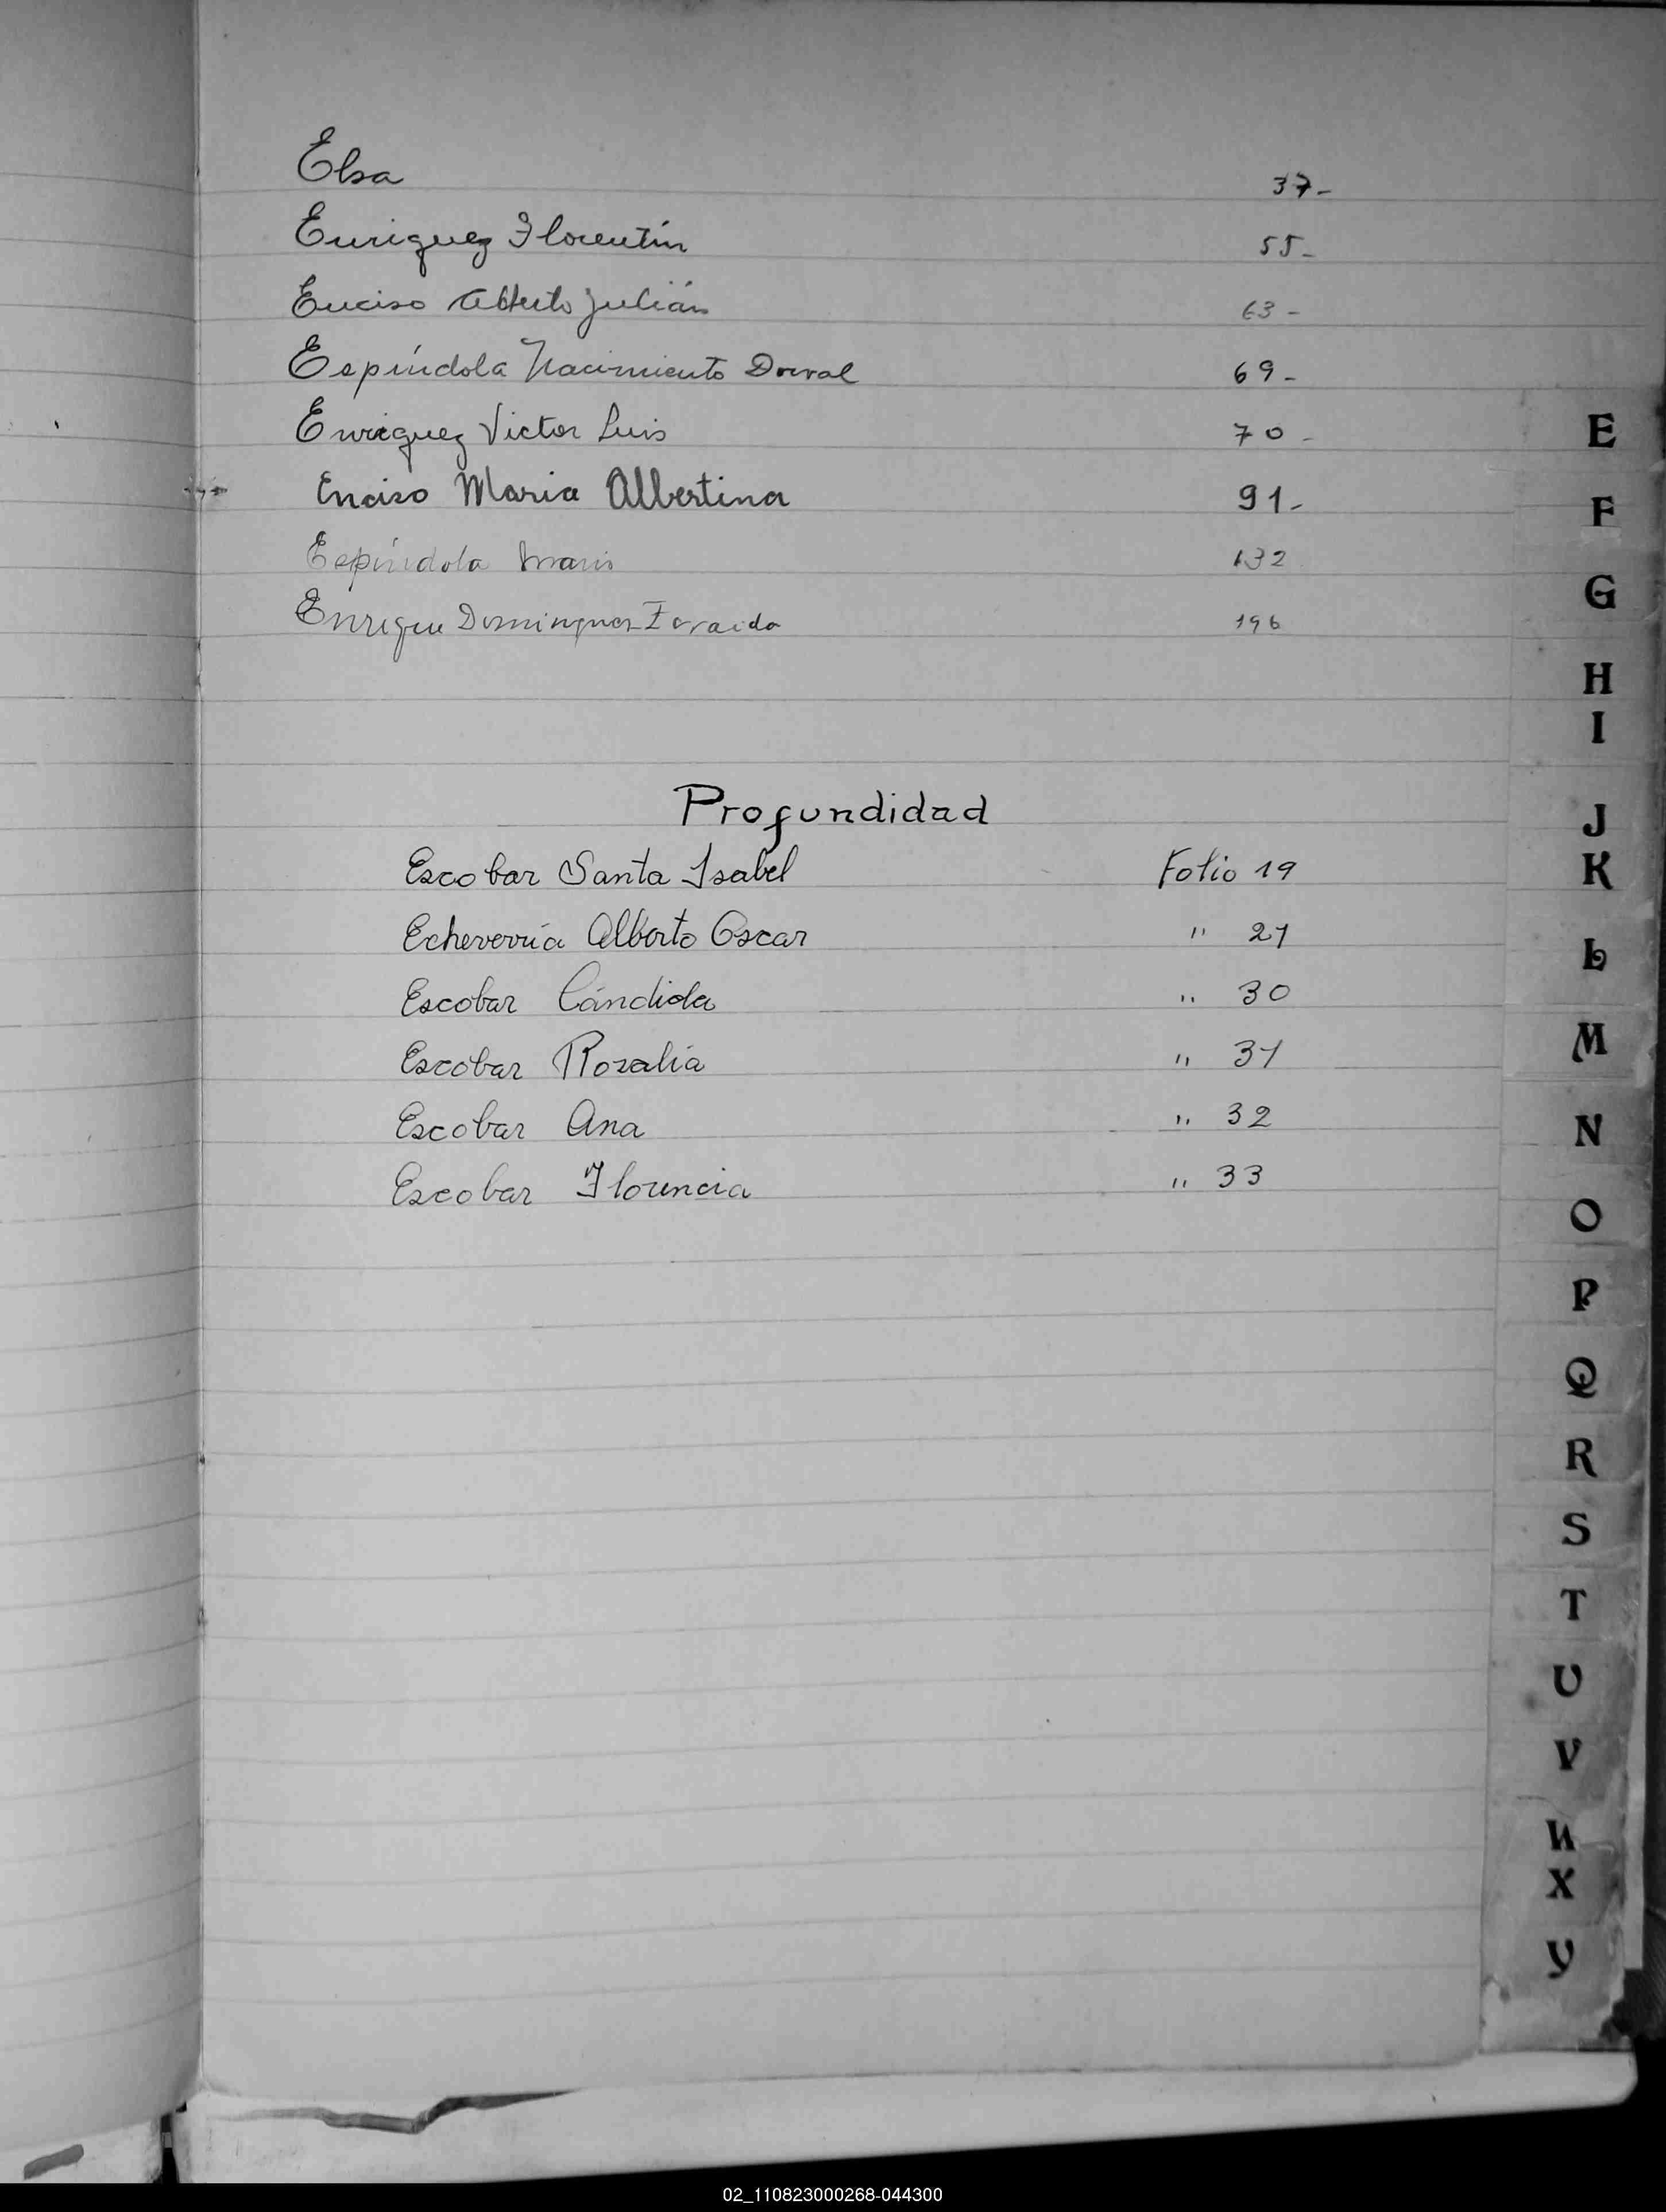 Elsa 37-
Enriquez Florentín 55-
Enciso Alberto Julián 63-
Espíndola Nacimiento Dorval 69-
Enriquez Victor Luis 70-
Enciso Maria Albertina 91-
Espíndola Mario 132
Enrique Dominguez 196
Profundidad
Escobar Santa Isabel Folio 19
Echeverría Alberto Oscar " 21
Escobar Cándida " 30
Escobar Rosalia " 31
Escobar Ana " 32
Escobar Florencia " 33
E
F
G
H
I
J
K
L
M
N
O
P
Q
R
S
T
U
V
W
X
Y
02_110823000268-044300